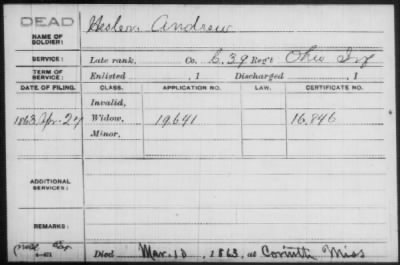 DEAD
NAME OF SOLDIER: Heslen Andrew
SERVICE: Late rank, Co. C. 39 Reg't Ohio Inf
TERM OF SERVICE: Enlisted , 1 Discharged , 1
DATE OF FILING. CLASS. APPLICATION NO. LAW. CERTIFICATE NO.
Invalid,
1863 Apr. 24 Widow, 19.641 16.846
Minor,
ADDITIONAL SERVICES:
REMARKS:
Died Mar. 10, 1863, at Corinth Miss